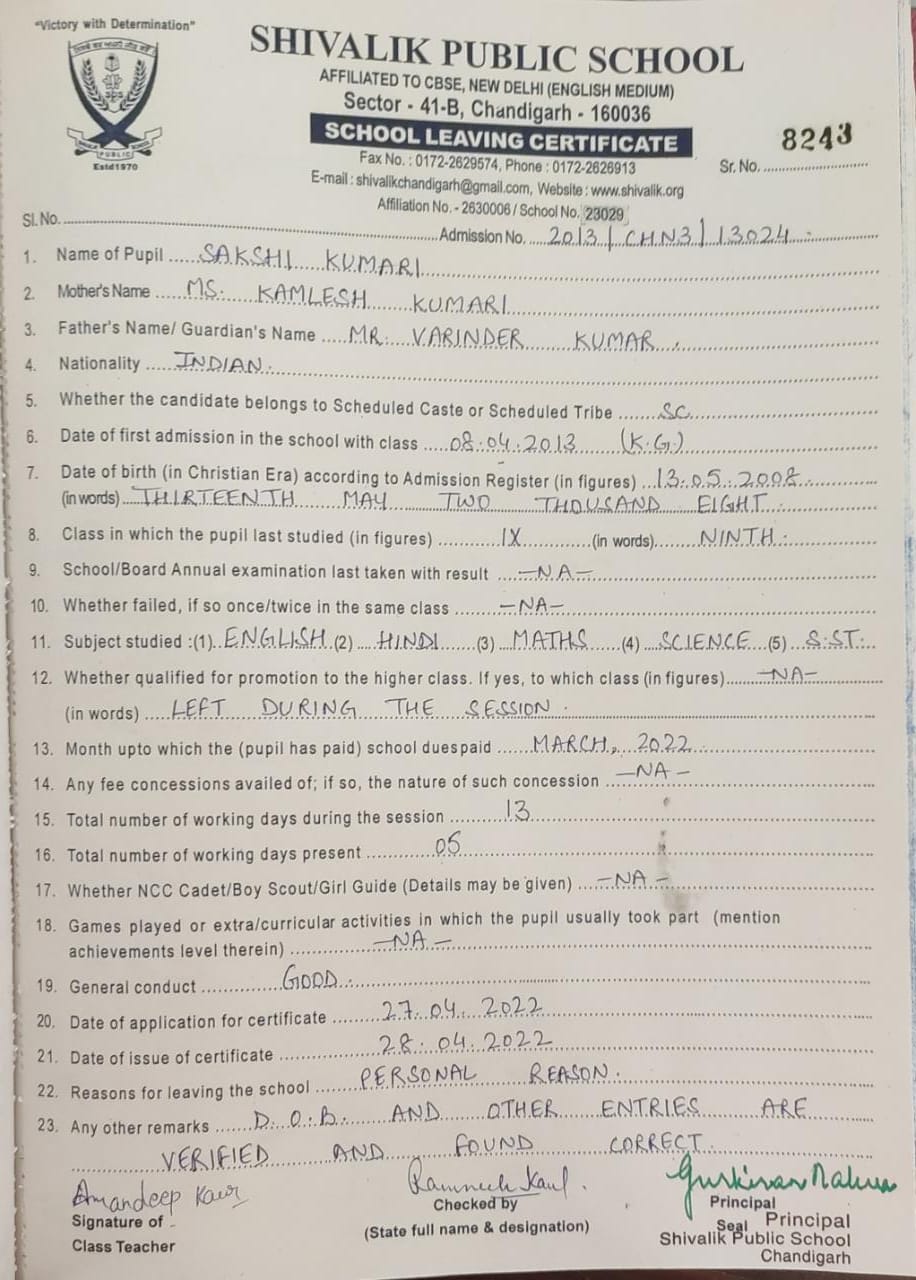 "Victory with Determination"
SHIVALIK PUBLIC SCHOOL
AFFILIATED TO CBSE, NEW DELHI (ENGLISH MEDIUM)
Sector - 41-B, Chandigarh - 160036
SCHOOL LEAVING CERTIFICATE
PUBLIC
Estd1970
Fax No. : 0172-2629574, Phone : 0172-2626913
Sr. No. 8243
E-mail : shivalikchandigarh@gmail.com, Website : www.shivalik.org
Affiliation No. - 2630006 / School No. 23029
Sl. No.
Admission No. 2013/CHN3/13024
1. Name of Pupil SAKSHI KUMARI
2. Mother's Name MS. KAMLESH KUMARI
3. Father's Name/ Guardian's Name MR. VARINDER KUMAR
4. Nationality INDIAN.
5. Whether the candidate belongs to Scheduled Caste or Scheduled Tribe SC
6. Date of first admission in the school with class 08.04.2013 (K.G.)
7. Date of birth (in Christian Era) according to Admission Register (in figures) 13.05.2008
(in words) THIRTEENTH MAY TWO THOUSAND EIGHT
8. Class in which the pupil last studied (in figures) IX (in words) NINTH
9. School/Board Annual examination last taken with result -NA-
10. Whether failed, if so once/twice in the same class -NA-
11. Subject studied :(1) ENGLISH (2) HINDI (3) MATHS (4) SCIENCE (5) S.ST.
12. Whether qualified for promotion to the higher class. If yes, to which class (in figures) -NA-
(in words) LEFT DURING THE SESSION.
13. Month upto which the (pupil has paid) school duespaid MARCH, 2022
14. Any fee concessions availed of; if so, the nature of such concession -NA-
15. Total number of working days during the session 13
16. Total number of working days present 05
17. Whether NCC Cadet/Boy Scout/Girl Guide (Details may be given) -NA-
18. Games played or extra/curricular activities in which the pupil usually took part (mention
achievements level therein) -NA-
19. General conduct GOOD.
20. Date of application for certificate 27.04.2022
21. Date of issue of certificate 28.04.2022
22. Reasons for leaving the school PERSONAL REASON.
23. Any other remarks D.O.B. AND OTHER ENTRIES ARE
VERIFIED AND FOUND CORRECT.
Amandeep Kaur
Signature of
Class Teacher
Checked by
(State full name & designation)
Principal
Seal Principal
Shivalik Public School
Chandigarh